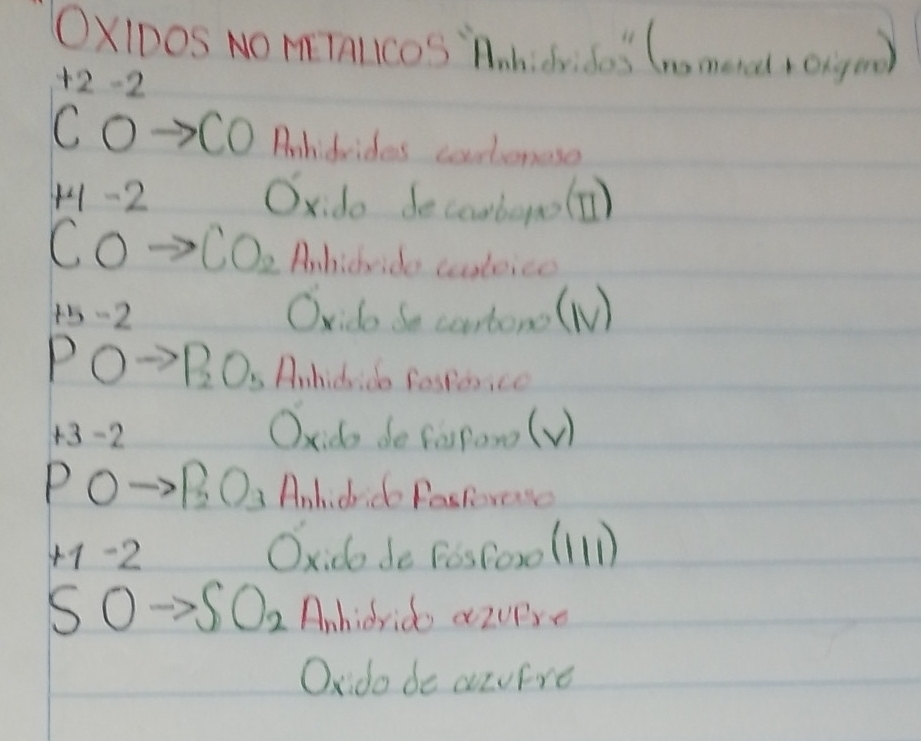 OXIDOS NO METALICOS "Anhidridos" (no metal + Oxigeno)
+2 -2
C O → CO Anhidridos carbonoso
+4 -2 Óxido de carbono (II)
C O → CO₂ Anhidrido carbonico
+5 -2 Óxido de carbono (IV)
P O → P₂O₅ Anhidrido fosfórico
+3 -2 Óxido de fósforo (V)
P O → P₂O₃ Anhidrido fosforoso
+1 -2 Óxido de Fósforo (III)
S O → SO₂ Anhidrido azufre
Oxido de azufre